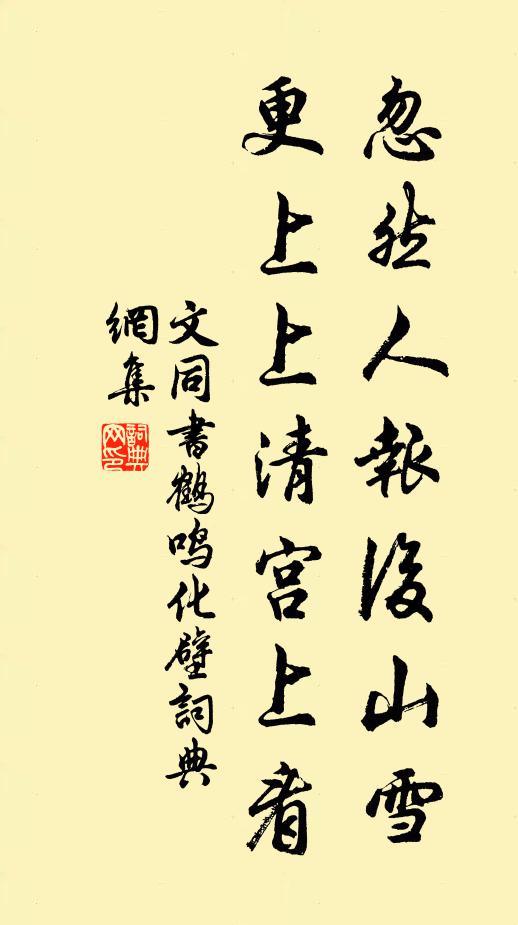 忽然人報後山雪
更上上清宮上看
文同書鶴鳴化壁詞典
網集
詞典
网印